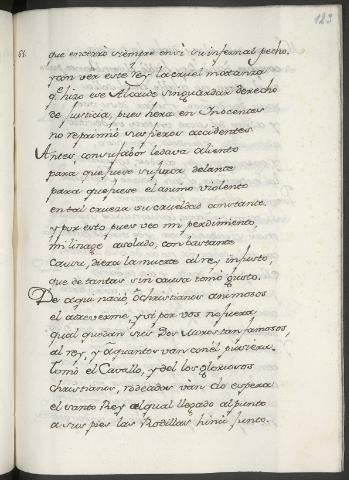 123
51.
que encerrò siempre en si su infernal pecho.
y con ver este rey la cruel matanza
q.e hizo ese Alcaide sin guardar derecho
de Justicia, pues hera en Inocentes
no reprimiò sus fieros accidentes.
Antes, con su fabor le dava aliento
para que fuese su furor delante
para que fuese el animo violento
en tal crueza su crueldad constante.
y por esto pues veo mi perdimiento,
mi linage asolado, con bastante
causa, diera la muerte al rey injusto,
que de tantas sin causa tomò gusto.
De aqui naciò, ò christianos animosos
el atreverme, y si por vos no fuera,
qual quedan sus Dos Moros tan famosos,
al rey, y a quantos van con èl pusiera.
tomò el Cavallo, y de los gloriosos
christianos, rodeados van do espera
el santo Rey al qual llegado al punto
a sus pies las Rodillas hincò junto.